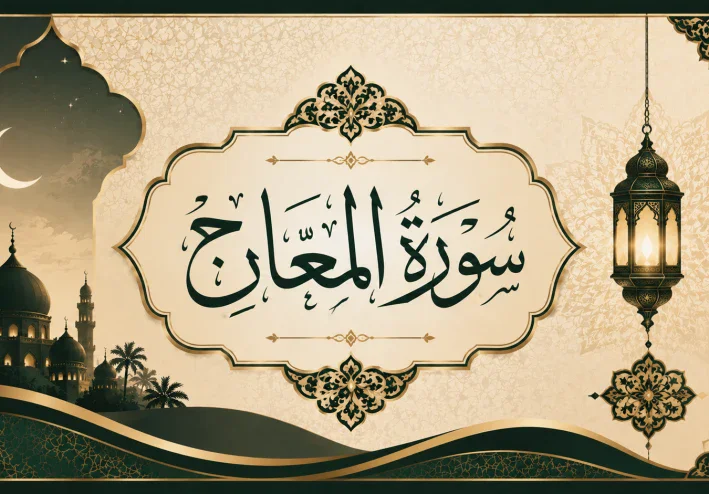 سُورَةُ المَعَارِج